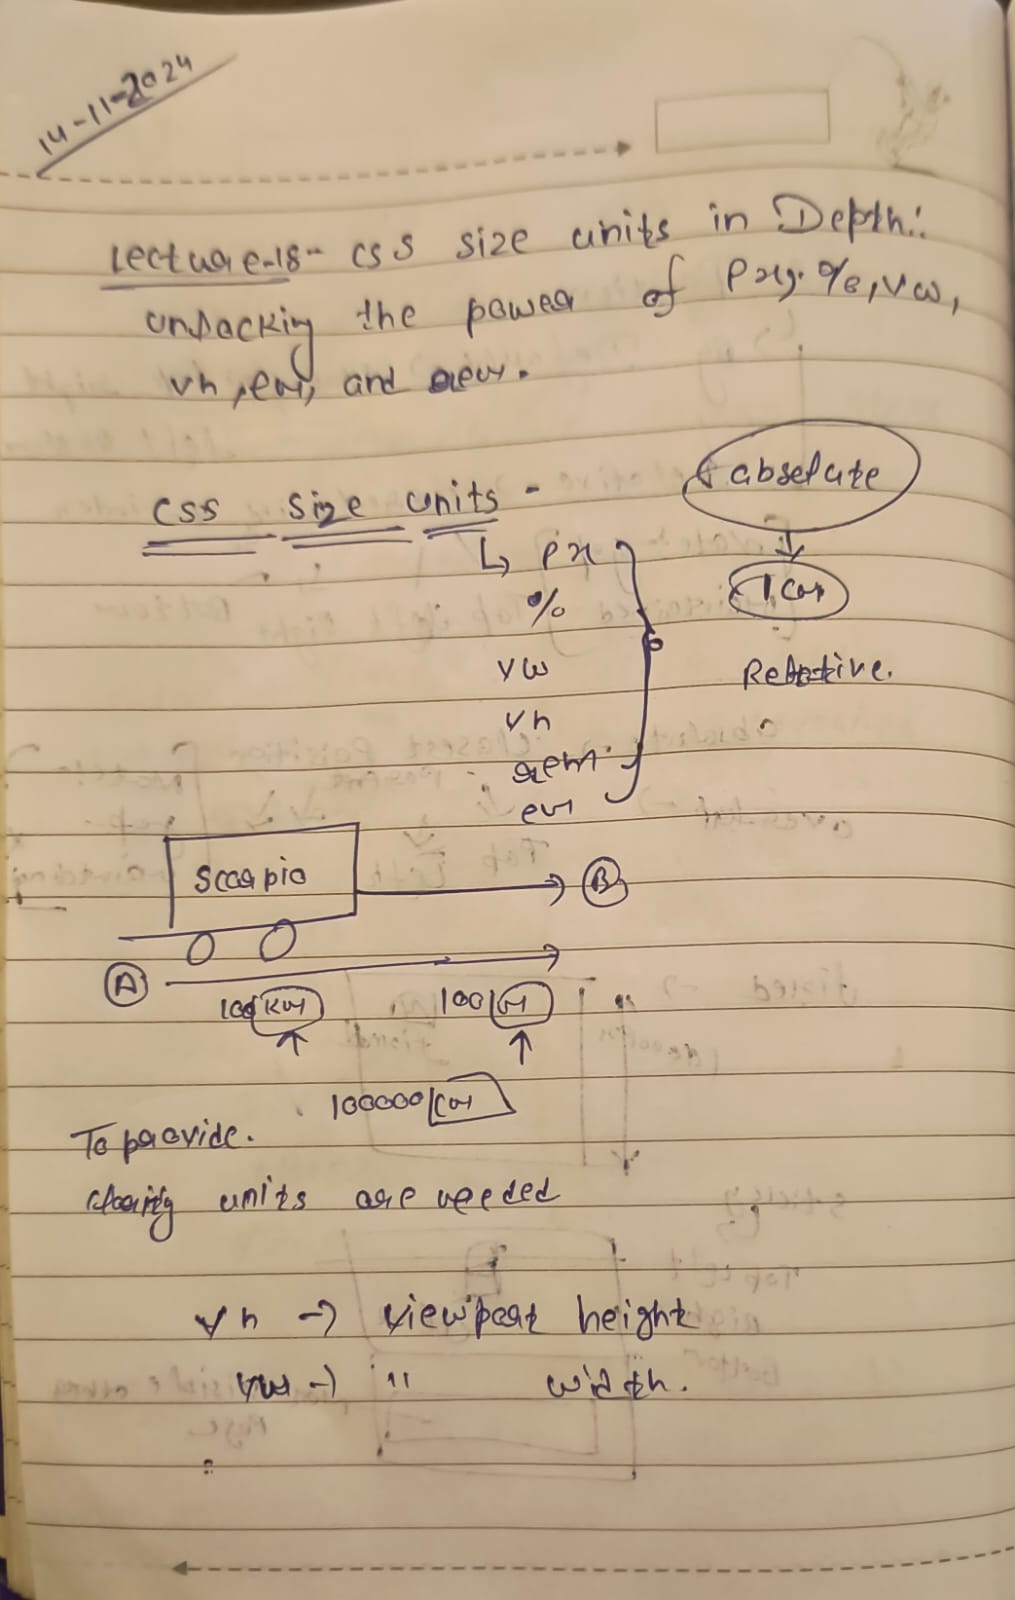 14-11-2024
Lecture-18- CSS size units in Depth!:
unpacking the power of Px, %, vw,
vh, em, and rem.
CSS Size units -
absolute
↳ px
1 cm
%
vw
Relative.
vh
rem
em
Scorpio
B
A
100 km 100 m
100000 cm
To provide.
clarity units are needed
vh → viewport height
vw → " width.